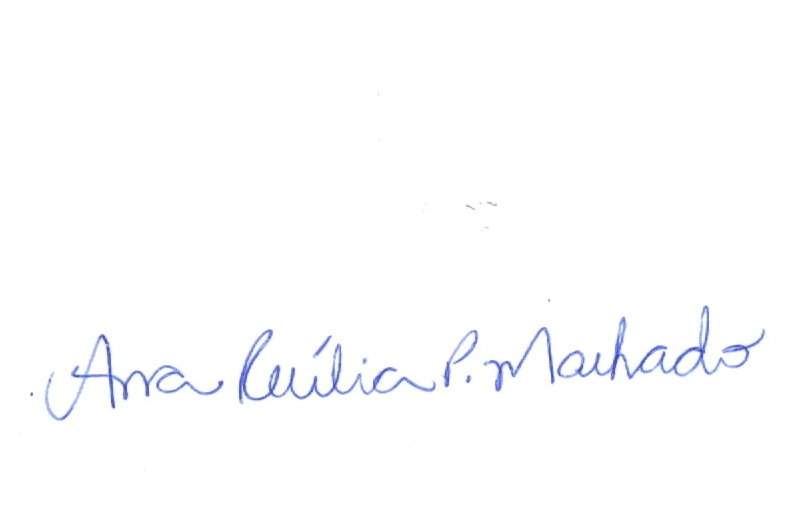 Ana Cecília P. Machado